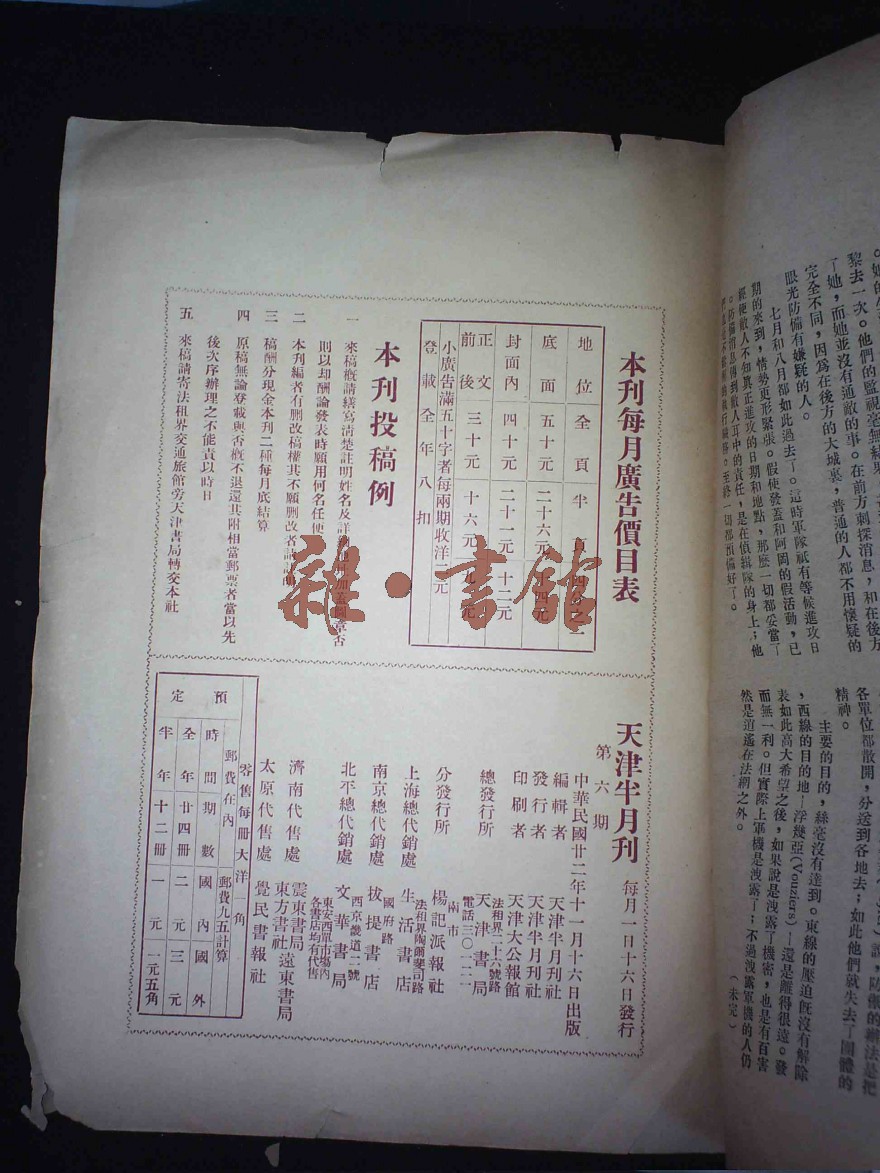 本刊每月廣告價目表
地位 全頁 半
底面 五十元 二十六元
封面內 四十元 二十一元 十二元
正文前後 三十元 十六元
小廣告滿五十字者每兩期收洋二元
登載全年八扣
本刊投稿例
一 來稿概請繕寫清楚註明姓名及詳
則以却酬論發表時願用何名任便
二 本刊編者有刪改稿權其不願刪改者請
三 稿酬分現金本刊二種每月底結算
四 原稿無論登載與否概不退還其附相當郵票者當以先
後次序辦理之不能責以時日
五 來稿請寄法租界交通旅館旁天津書局轉交本社
雜·書館
天津半月刊 每月一日十六日發行
第六期
中華民國廿二年十一月十六日出版
編輯者 天津半月刊社
發行者 天津半月刊社
印刷者 天津大公報館
總發行所 天津書局
法租界二十六號路
電話三〇一二一
分發行所 南市 楊記派報社
上海總代銷處 生活書店
法租界陶爾斐司路
南京總代銷處 拔提書店
國府路
北平總代銷處 文華書局
西京畿道二號
東安西單市場內
各書店均有代售
濟南代售處 震東書局 遠東書局
東方書社
太原代售處 覺民書報社
零售每冊大洋一角
預定
郵費在內 郵費九五計算
時間 期數 國內 國外
全年 廿四冊 二元 三元
半年 十二冊 一元 一元五角
黎去一次。他們的監視毫無結果
—她，而她並沒有通敵的事。在前方刺探消息，和在後方
完全不同，因爲在後方的大城裏，普通的人都不用懷疑的
眼光防備有嫌疑的人。
七月和八月都如此過去了。這時軍隊祇有等候進攻日
期的來到，情勢更形緊張。假使發蓋和阿岡的假活動，已
經使敵人不知眞正進攻的日期和地點，那麼一切都妥當了
。防備消息傳到敵人耳中的責任，是在偵緝隊的身上；他
至終一切都預備好了。
各單位都散開，分送到各地去；如此他們就失去了團體的
精神。
主要的目的，絲毫沒有達到。東線的壓迫既沒有解除
，西線的目的地—浮幾亞(Vouziers)—還是離得很遠。發
表如此高大希望之後，如果說是洩露了機密，也是有百害
而無一利。但實際上軍機是洩露了；不過洩露軍機的人仍
然是逍遙在法網之外。
（未完）